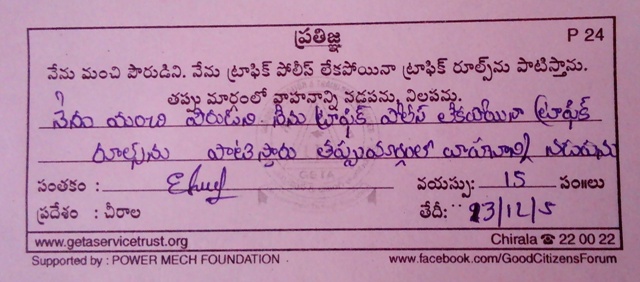 ప్రతిజ్ఞ P 24
నేను మంచి పౌరుడిని. నేను ట్రాఫిక్ పోలీస్ లేకపోయినా ట్రాఫిక్ రూల్స్‌ను పాటిస్తాను.
తప్పు మార్గంలో వాహనాన్ని నడపను, నిలపను.
నేను మంచి పౌరుడుని నేను ట్రాఫిక్ పోలీస్ లేకపోయినా ట్రాఫిక్
రూల్స్‌ను పాటిస్తారు తప్పుమార్గంలో వాహనాన్ని నడుపను
సంతకం : వయస్సు: 15 సం॥లు
ప్రదేశం : చీరాల తేదీ: 23/12/5
www.getaservicetrust.org Chirala ☎ 22 00 22
Supported by : POWER MECH FOUNDATION www.facebook.com/GoodCitizensForum